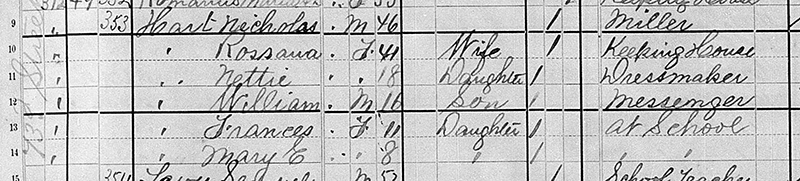 312 49 352 35 Keeping House
9 " 353 Hart Nicholas " M 46 1 Miller
10 " " Rossana " F 41 Wife 1 Keeping House
11 " " Nettie " " 18 Daughter 1 Dressmaker
12 " " William " M 16 Son 1 Messenger
13 " " Frances " F 11 Daughter 1 At School
14 " " Mary E " " 8 " 1 " "
15 354 M 53 1 School Teacher
Street